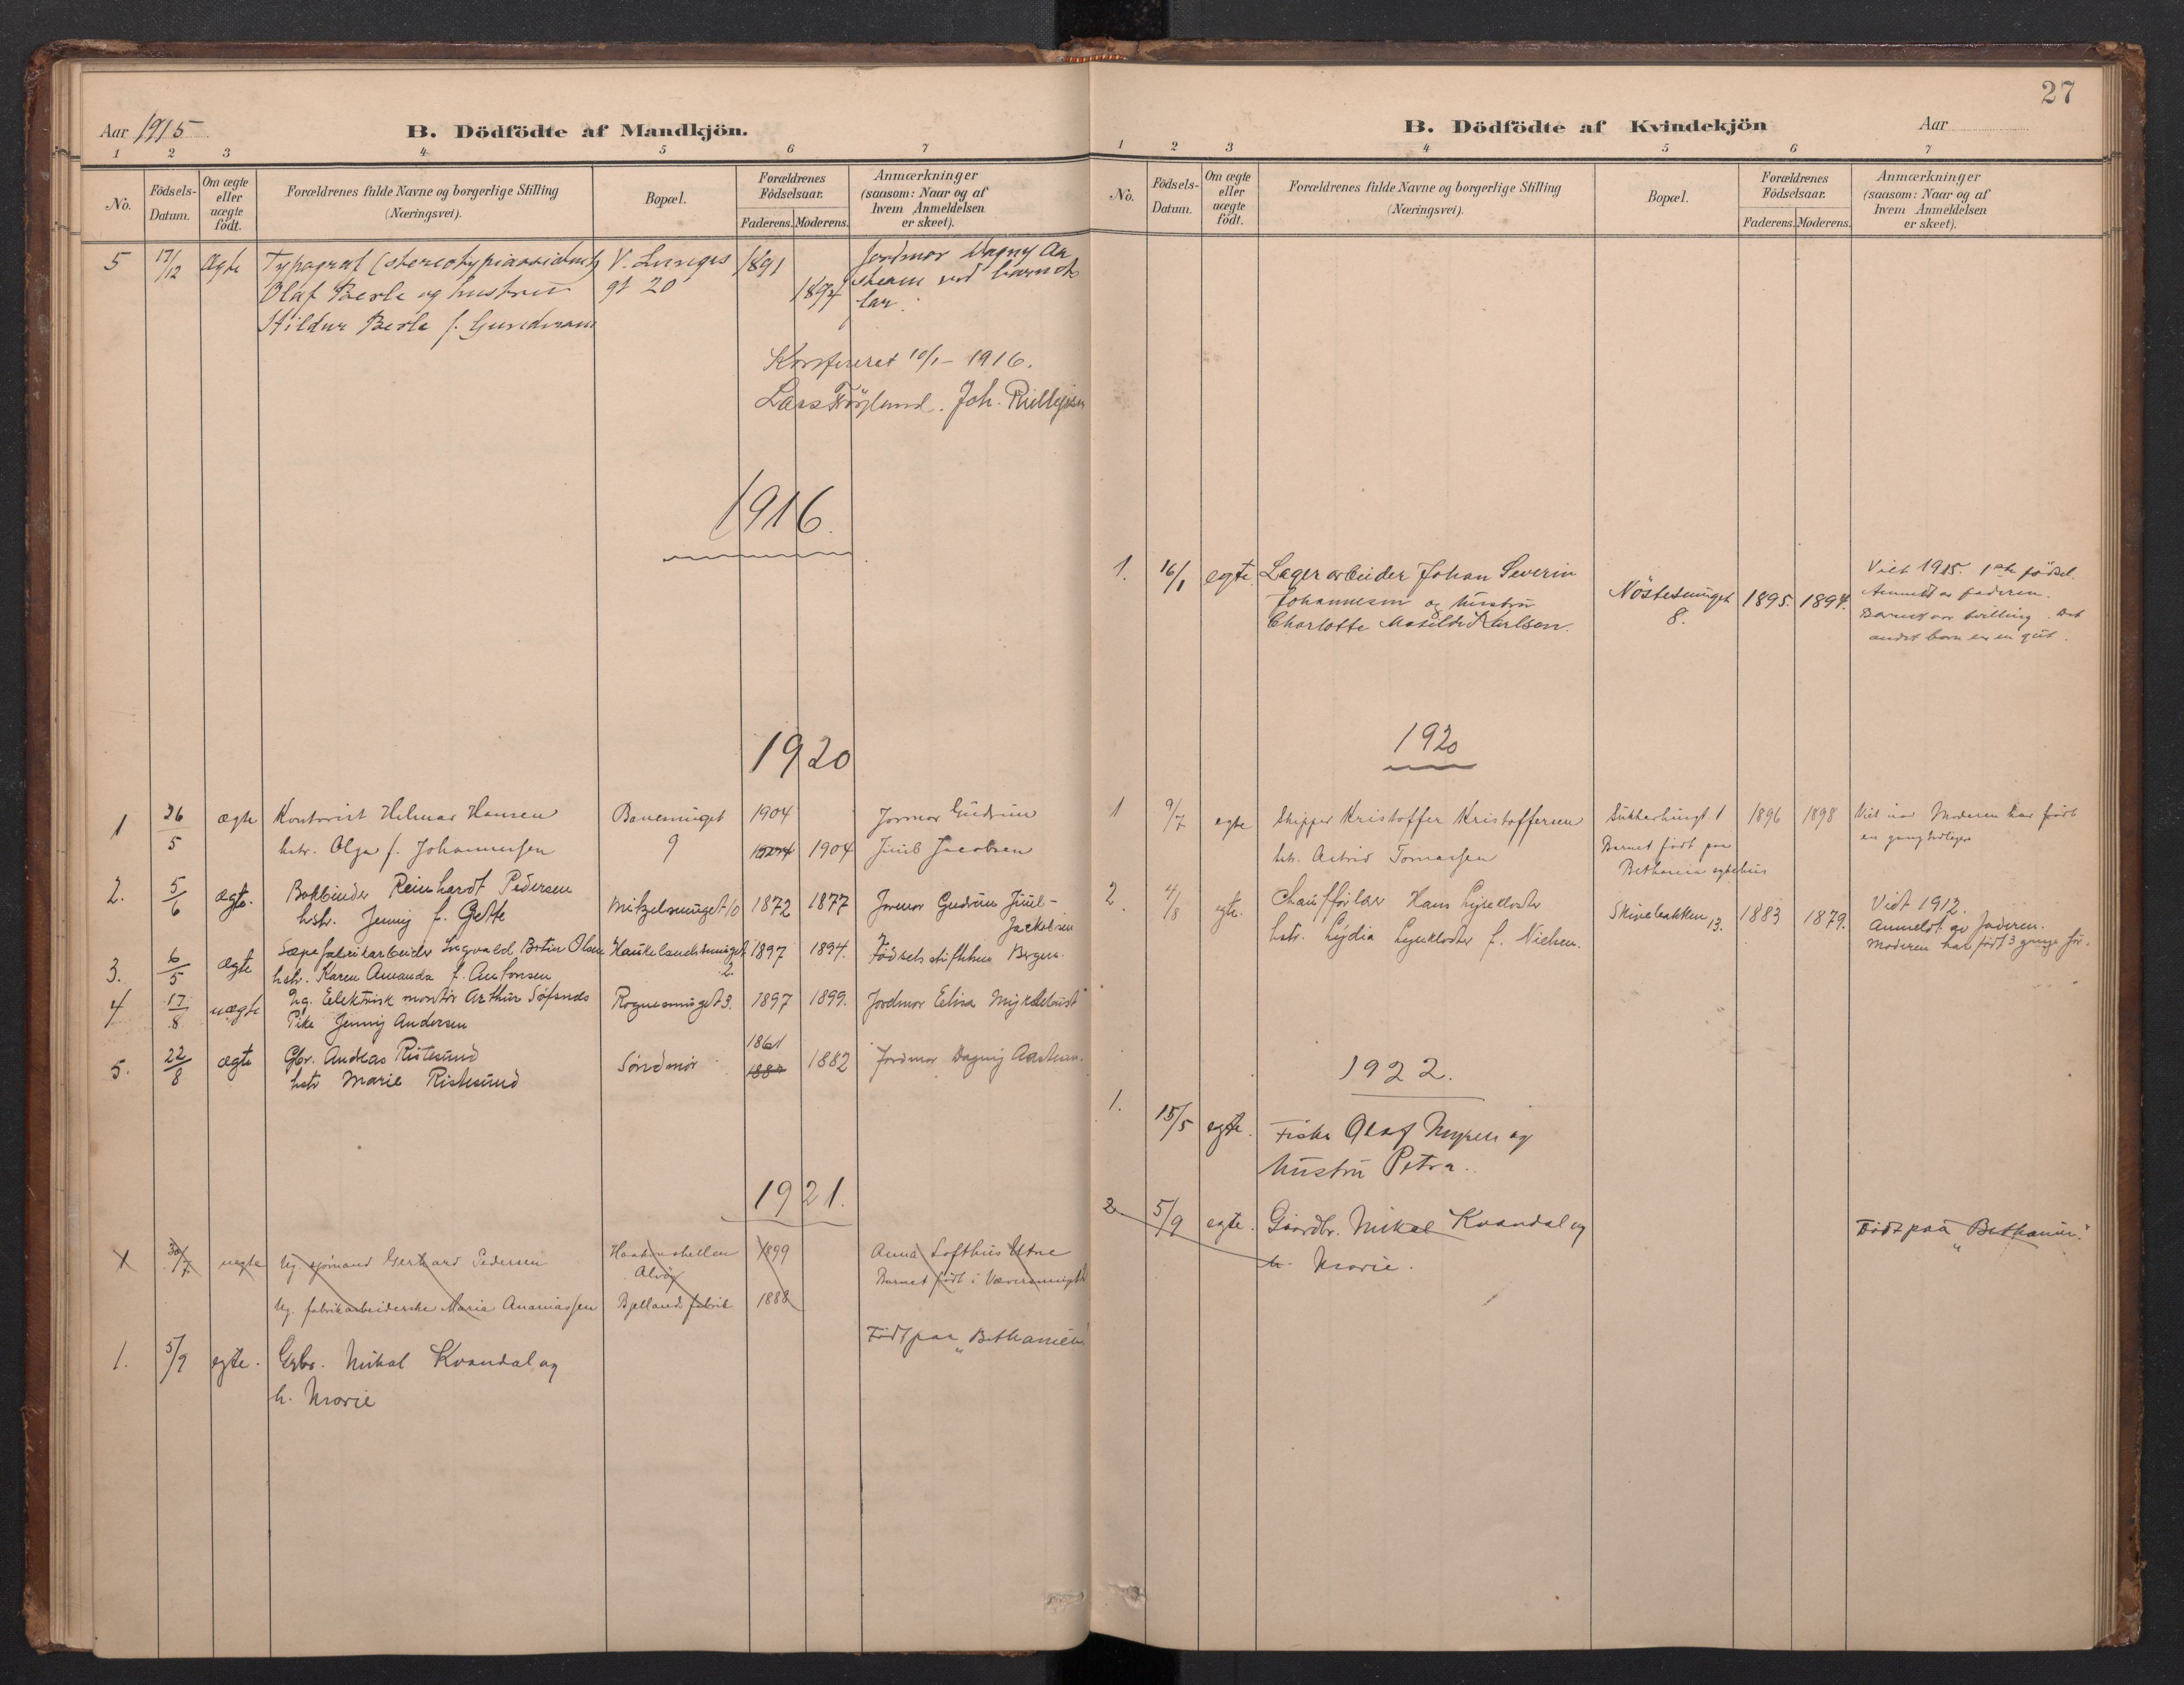 Aar 1915
B. Dödfödte af Mandkjön.
1 2 3 4 5 6 7
No.
Födsels-Datum.
Om ægte eller uægte födt.
Forældrenes fulde Navne og borgerlige Stilling
(Næringsvei).
Bopæl.
Forældrenes Födselsaar.
Faderens. Moderens.
Anmærkninger
(saasom: Naar og af
hvem Anmeldelsen
er skeet).
5 17/12 Ægte Typograf (stereotypi V. Lunges 1891 Jordmor Dagny Aa
Olaf Berle og hustru gt 20 1894
Hildur Berle f. Gundersen
Konfereret 10/1 - 1916.
Lars Joh.
1916.
1920
1 26/5 ægte Kontorist Helmar Hansen 1904 Jormor Gudrun
hstr. Olga f. Johannessen 9 1904 Juul Jacobsen
2. 5/6 ægte. Bokbinder Reinhardt Pedersen Mitzelsmuget 10 1872 1877 Jormor Gudrun Juul-
hstr. Jenny f. Gette Jackobsen
3. 6/5 ægte Sæpefabrikarbeider Ingvald Olsen Haukelandsmuget 1897 1894. Födselsstiftelsen Bergen.
hstr. Karen Amanda f. 2.
4 17/8 uægte Ug. Elektrisk montör Arthur Rognesmuget 3. 1897 1899. Jordmor Elisa Myklebust
Pike Jenny Andersen
1861
5. 22/8 ægte Gbr. Andreas Ristesund Søndmör 1882 Jordmor Dagny
hstr Marie Ristesund
1921.
1 30/7 uegte Ug. sjømand Gerhard Pedersen Haakonshellen 1899 Anna Lofthus Utne
Alvöy Barnet født i
Ug. fabrikarbeiderske Maria Ananiassen Bjelland fabrik 1888
Födt paa „Bethanien"
1. 5/9 egte. Grbr. Mikal Kvandal og
h. Marie
27
B. Dödfödte af Kvindekjön
Aar
1 2 3 4 5 6 7
No.
Födsels-Datum.
Om ægte eller uægte födt.
Forældrenes fulde Navne og borgerlige Stilling
(Næringsvei).
Bopæl.
Forældrenes Födselsaar.
Faderens. Moderens.
Anmærkninger
(saasom: Naar og af
hvem Anmeldelsen
er skeet).
1. 16/1 egte Lagerarbeider Johan Severin Nöstesmuget 1895. 1894. Viet 1915. 1ste födsel.
Johannesen og hustru 8. Anmeldt av faderen.
Charlotte Matilde Karlsen. Barnet var tvilling. Det
andet barn er en gut.
1920
1 9/7 egte Skipper Kristoffer Kristoffersen 1 1896 1898 Moderen har født
hstr. Astrid Tomassen Barnet født paa en gang tidligere
Bethania sykehus
2. 4/8 egte. Chaufförlær Hans Lysekloster Skivebakken 13. 1883 1879. Vidt 1912.
hstr. Lydia Lysekloster f. Nielsen. Anmeldt av faderen.
Moderen har född 3 gange för.
1922.
1. 15/5 egte. Fisker Olaf Myren og
hustru Petra.
2 5/9 egte. Gaardbr. Mikal Kvandal og Födt paa „Bethanien"
h. Marie.